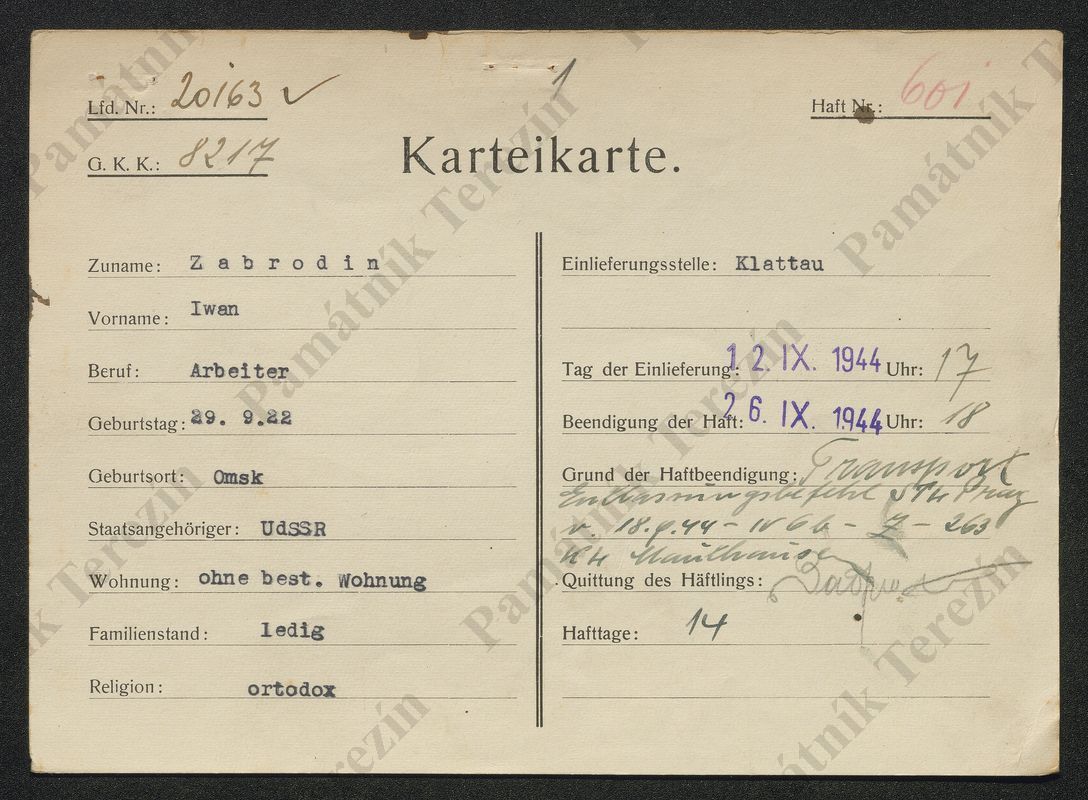 1
Lfd. Nr.: 20163 ✓
Haft Nr.: 601
G. K. K.: 8217
Karteikarte.
Zuname: Zabrodin
Vorname: Iwan
Beruf: Arbeiter
Geburtstag: 29. 9.22
Geburtsort: Omsk
Staatsangehöriger: UdSSR
Wohnung: ohne best. Wohnung
Familienstand: ledig
Religion: ortodox
Einlieferungsstelle: Klattau
Tag der Einlieferung: 12. IX. 1944 Uhr: 17
Beendigung der Haft: 26. IX. 1944 Uhr: 18
Grund der Haftbeendigung: Transport
Entlassungsbefehl STL Prag
v. 18.9.44 - IV 6 b - Z - 263
KL Mauthausen
Quittung des Häftlings:
Hafttage: 14
Památník Terezín